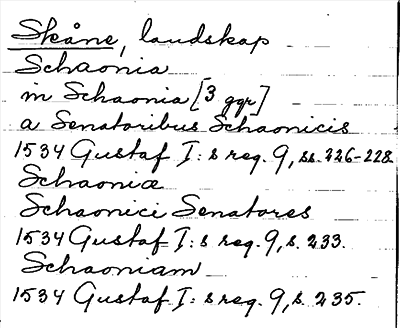 Skåne, landskap
Schaonia
in Schaonia [3 ggr]
a Senatoribus Schaonicis
1534 Gustaf I:s reg. 9, ss. 226-228
Schaoniæ
Schaonici Senatores
1534 Gustaf I:s reg. 9, s. 233.
Schaoniam
1534 Gustaf I:s reg. 9, s. 235.